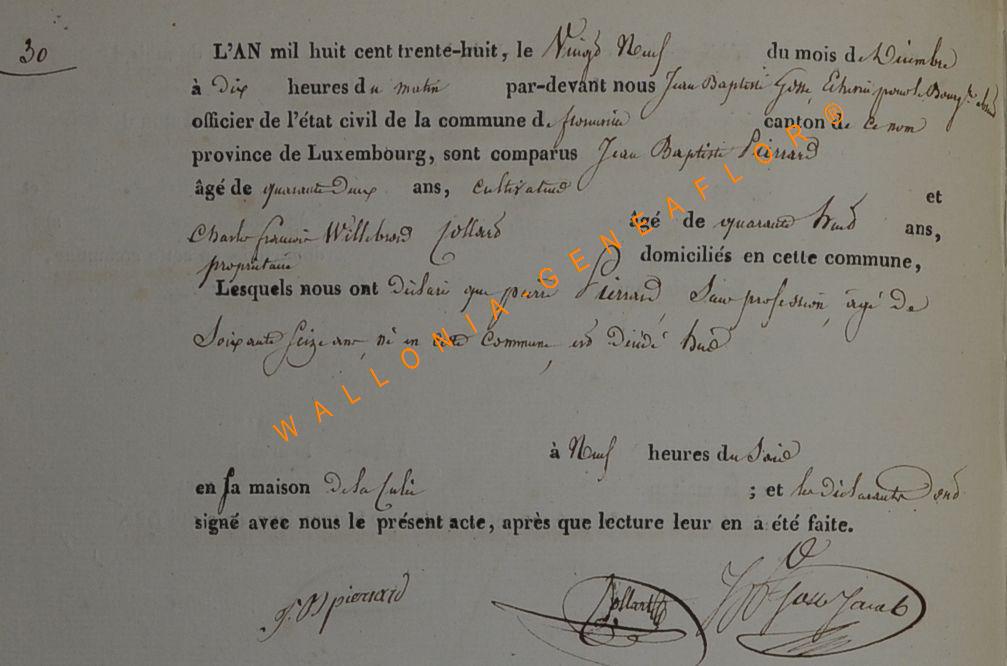 30
L'AN mil huit cent trente-huit, le Vingt Neuf du mois de Décembre
à dix heures du matin par-devant nous Jean Baptiste Gosse, Echevin pour le Bourg.
officier de l'état civil de la commune de canton de ce nom
province de Luxembourg, sont comparus Jean Baptiste Pierrard
âgé de quarante deux ans, cultivateur et
Charles françois Willebrord Collard âgé de quarante huit ans,
propriétaire domiciliés en cette commune,
Lesquels nous ont déclaré que pierre Pierrard, Sans profession, âgé de
Soixante Seize ans, né en cette Commune, est décédé hier
à Neuf heures du Soir
en sa maison de la ; et les déclarants ont
signé avec nous le présent acte, après que lecture leur en a été faite.
J. B pierrard Collard Gosse Jacob
WALLONIA-GENEAFLOR ©